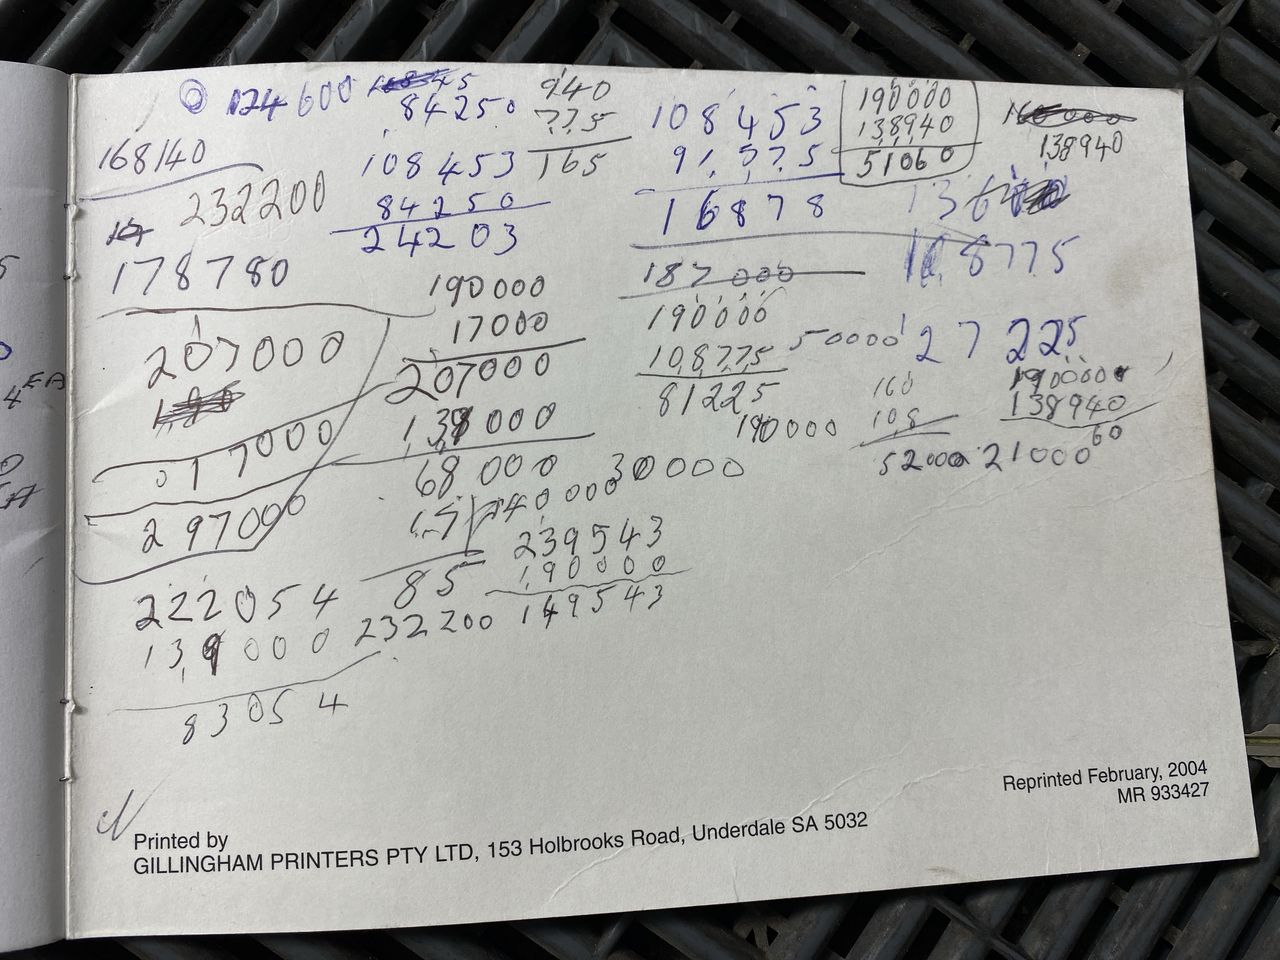 124600
84250
168140
232200
178780
207000
017000
297000
222054
139000
83054
108453
84250
24203
940
775
165
190000
17000
207000
139000
68000
17
85
232200
240000
30000
239543
190000
149543
108453
91775
16878
187000
190000
108775
81225
190000
50000
190000
138940
51060
138940
108775
27225
160
108
52000
190000
138940
21000
60
Printed by
GILLINGHAM PRINTERS PTY LTD, 153 Holbrooks Road, Underdale SA 5032
Reprinted February, 2004
MR 933427